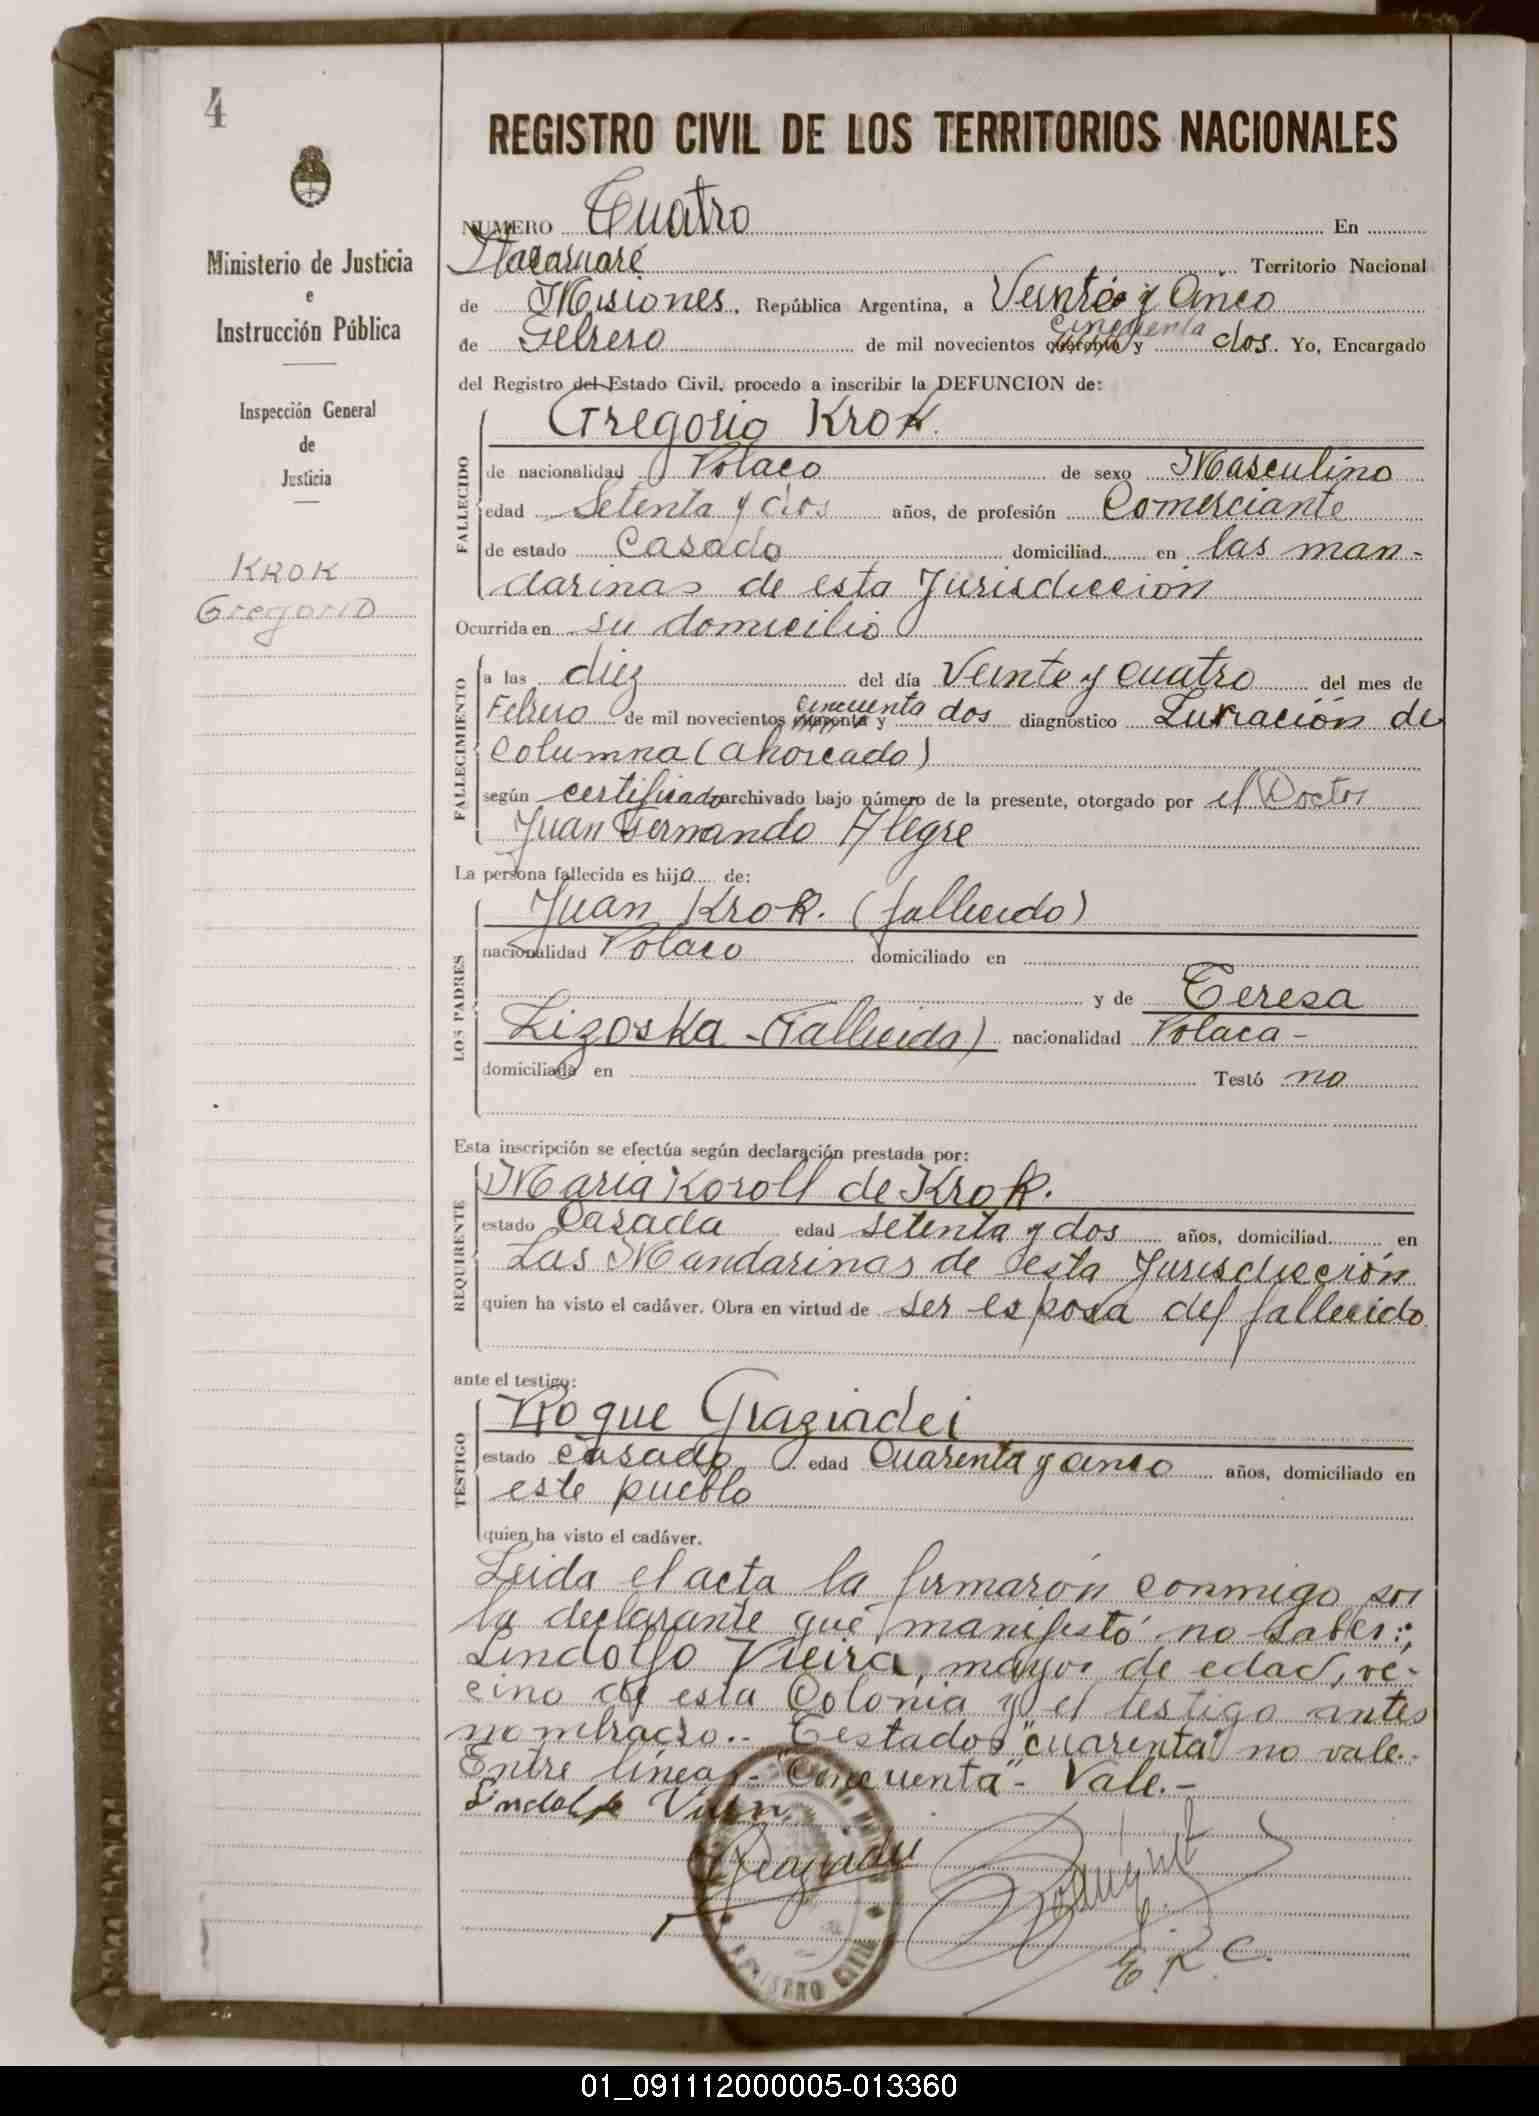 4
REGISTRO CIVIL DE LOS TERRITORIOS NACIONALES
Ministerio de Justicia
e
Instrucción Pública
Inspección General
de
Justicia
KROK
Gregorio
NUMERO Cuatro En
Itacaruaré Territorio Nacional
de Misiones, República Argentina, a Veinte y Cinco
de Febrero de mil novecientos cuarenta y cincuenta dos. Yo, Encargado
del Registro del Estado Civil, procedo a inscribir la DEFUNCION de:
FALLECIDO
Gregorio Krok.
de nacionalidad Polaco de sexo Masculino
edad Setenta y dos años, de profesión Comerciante
de estado Casado domiciliad en las man-
darinas de esta Jurisdicción
Ocurrida en su domicilio
FALLECIMIENTO
a las diez del día Veinte y cuatro del mes de
Febrero de mil novecientos cuarenta y cincuenta dos diagnóstico Luxación de
Columna (ahorcado)
según certificado archivado bajo número de la presente, otorgado por el Doctor
Juan Fernando Alegre
La persona fallecida es hijo de:
LOS PADRES
Juan Krok. (fallecido)
nacionalidad Polaco domiciliado en
y de Teresa
Lizoska - (Fallecida) nacionalidad Polaca -
domiciliada en Testó no
Esta inscripción se efectúa según declaración prestada por:
REQUIRENTE
Maria Koroll de Krok.
estado Casada edad setenta y dos años, domiciliad en
Las Mandarinas de esta Jurisdicción
quien ha visto el cadáver. Obra en virtud de ser esposa del fallecido
ante el testigo:
TESTIGO
Roque Graziadei
estado casado edad Cuarenta y cinco años, domiciliado en
este pueblo
quien ha visto el cadáver.
Leida el acta la firmarón conmigo por
la declarante que manifestó no saber:
Lindolfo Vieira, mayor de edad, ve-
cino de esta Colonia y el testigo antes
nombrado.- Testados "cuarenta" no vale.-
Entre líneas - "Cincuenta" - Vale.-
Lindolfo
Graziadei
E. R. C.
REGISTRO CIVIL
01_091112000005-013360